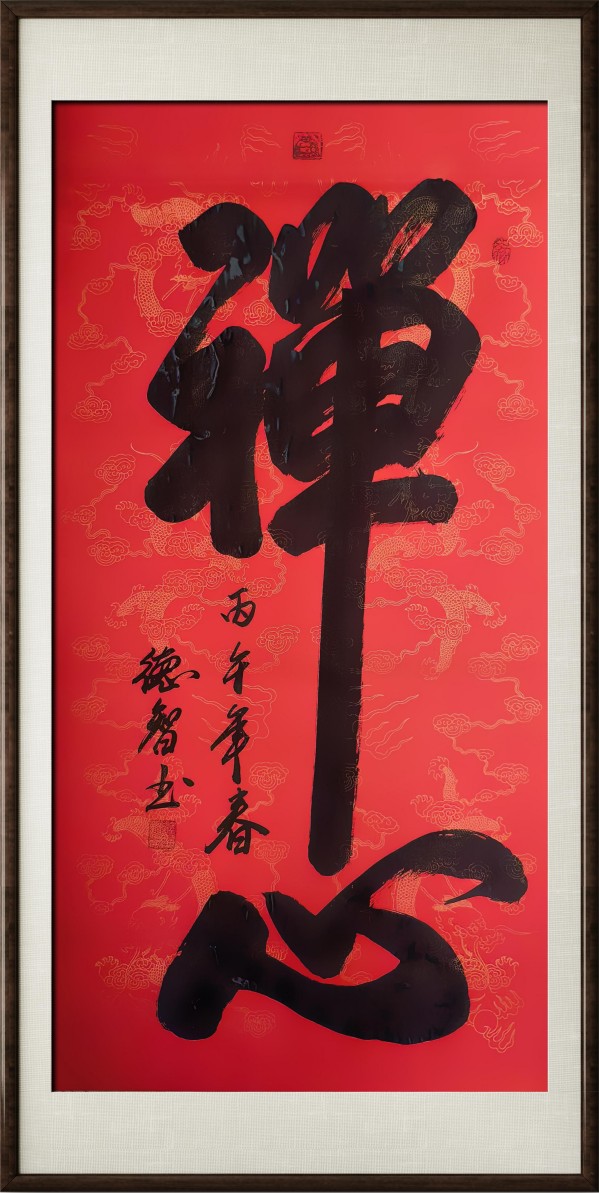 禪心
丙午年春
德智书